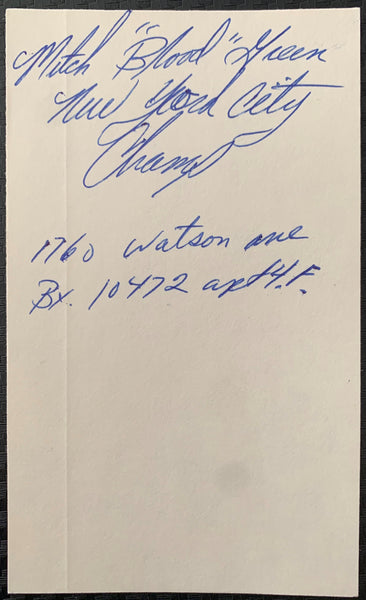 Mitch "Blood" Green
New York City
Champ
1760 Watson ave
Bx. 10472 apt 4.F.